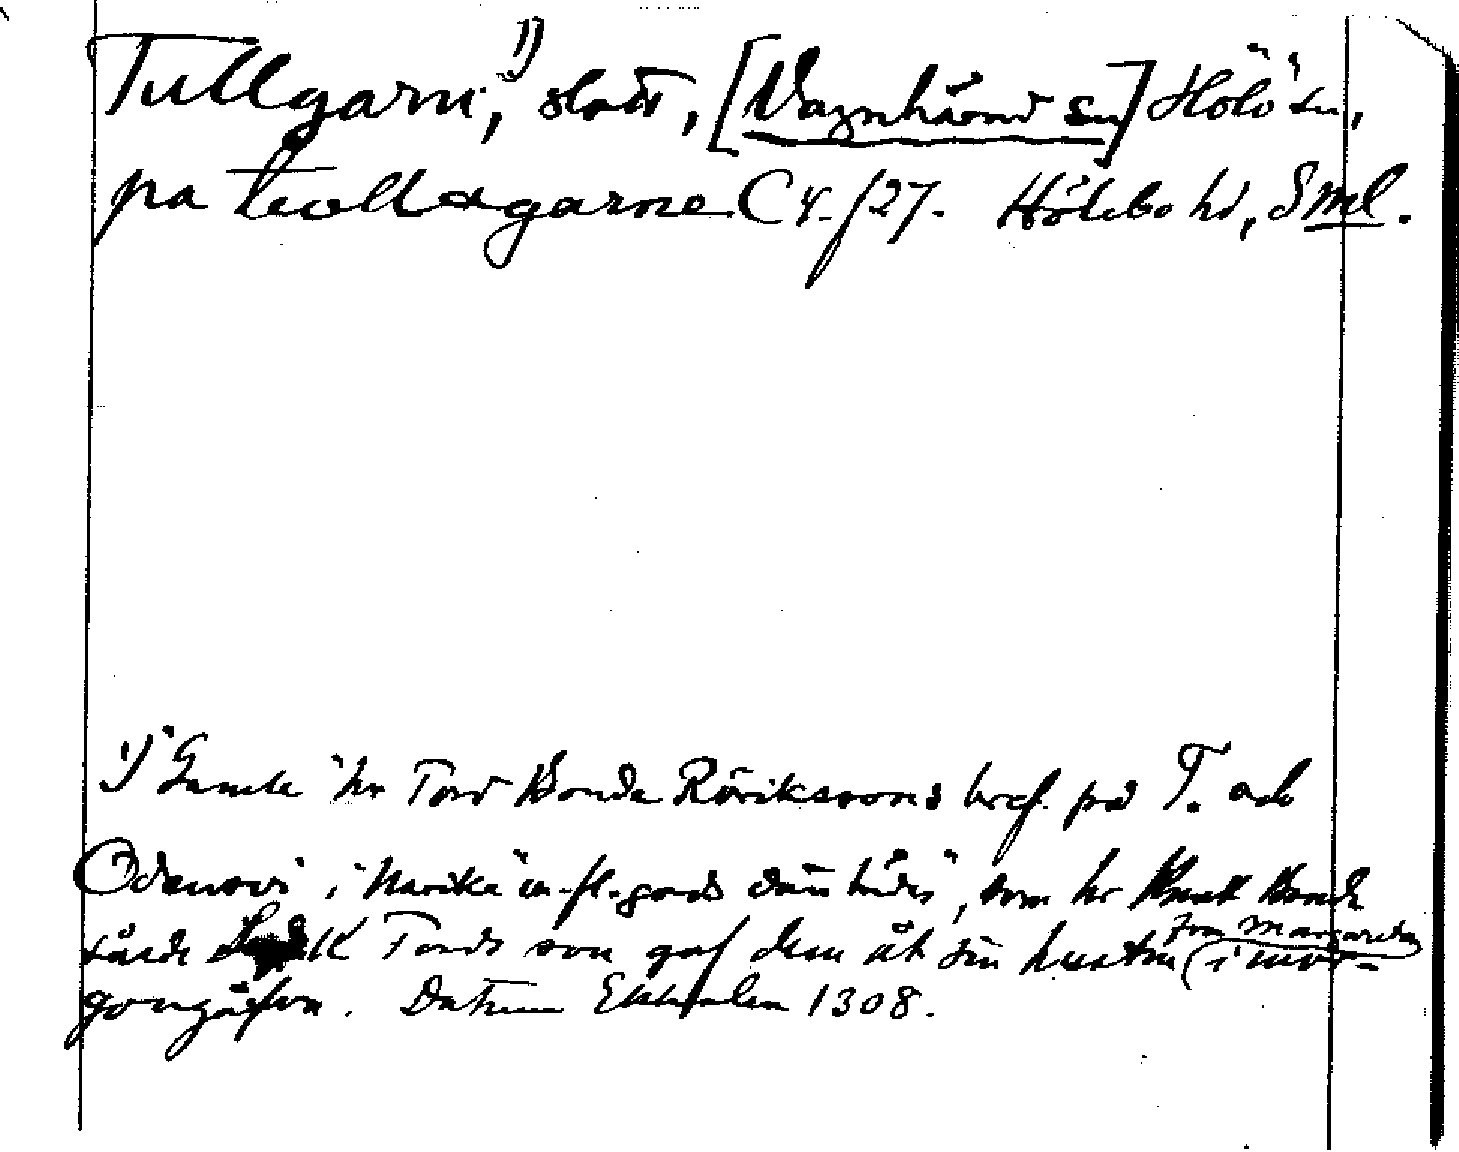 Tullgarn,¹⁾ slott, [Vagnhärad sn] Hölö sn,
pa tivlle garne C 4. f 27. Hölebo hd, Sml.
1) "Gamle" hr Tord Bonde Röriksons bref på T. och
Odensvi i "Narike" m. fl. gods som hr Knut Bonde
Tords son gaf dem åt sin hustru (fru Margareta) i mor-
gongåfva. Datum Ekholm 1308.